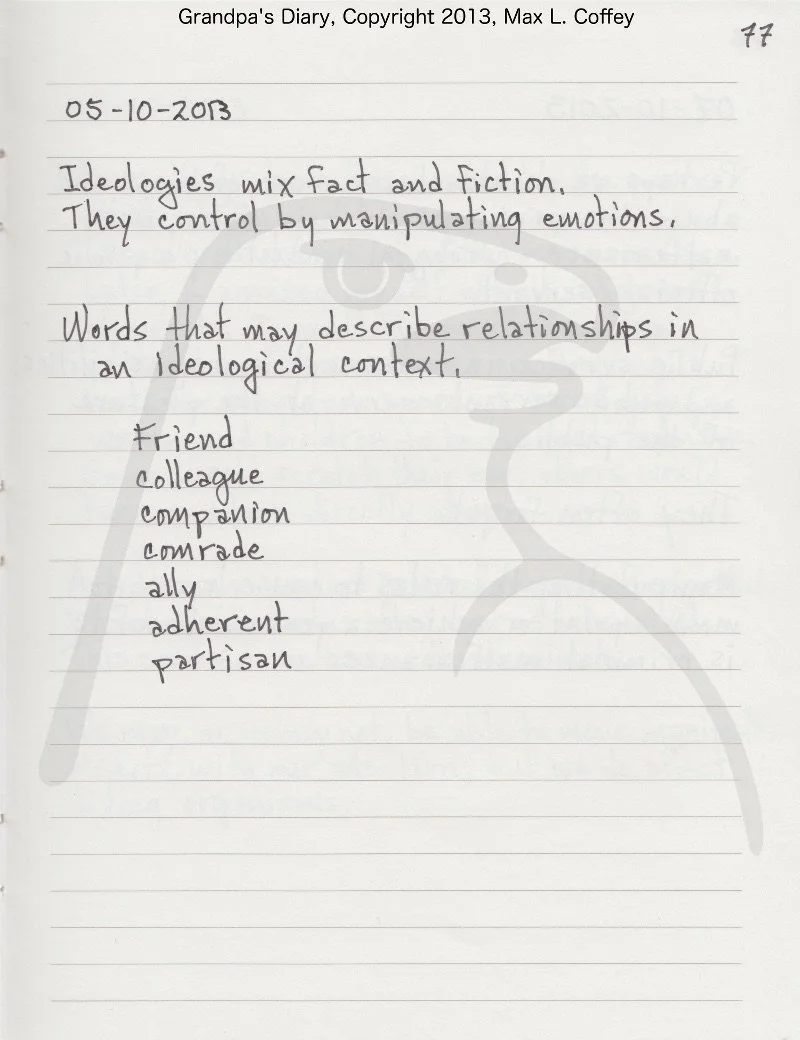 Grandpa's Diary, Copyright 2013, Max L. Coffey
77
05-10-2013
Ideologies mix fact and fiction.
They control by manipulating emotions.
Words that may describe relationships in
an ideological context.
Friend
colleague
companion
comrade
ally
adherent
partisan